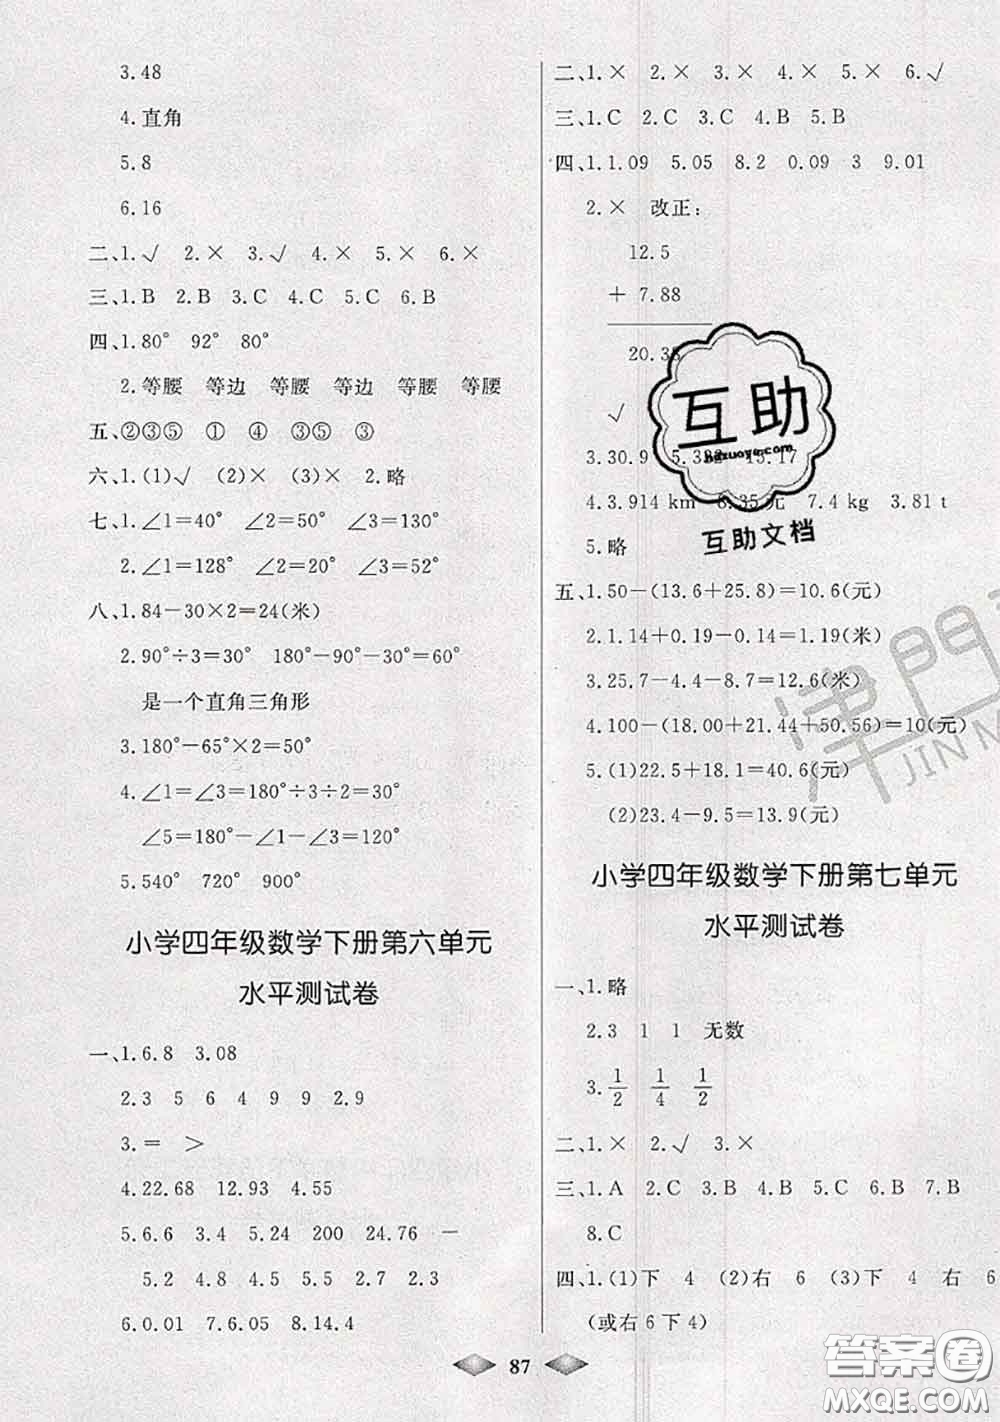 3.48
4.直角
5.8
6.16
二、1.√ 2.× 3.√ 4.× 5.× 6.×
三、1.B 2.B 3.C 4.C 5.C 6.B
四、1.80° 92° 80°
2.等腰 等边 等腰 等边 等腰 等腰
五、②③⑤ ① ④ ③⑤ ③
六、1.(1)√ (2)× (3)× 2.略
七、1.∠1=40° ∠2=50° ∠3=130°
2.∠1=128° ∠2=60° ∠3=52°
八、1.84-30×2=24(米)
2.90°÷3=30° 180°-90°-30°=60°
是一个直角三角形
3.180°-65°×2=50°
4.∠1=∠3=180°÷3÷2=30°
∠5=180°-∠1-∠3=120°
5.540° 720° 900°
小学四年级数学下册第六单元
水平测试卷
一、1.6.8 3.08
2.3 5 6 4 9 9 2.9
3.= >
4.22.68 12.93 4.55
5.6.6 3.4 5.24 200 24.76 -
5.2 4.8 7.1 2.7 2.3
6.0.01 7.6.05 8.14.4
二、1.× 2.× 3.× 4.× 5.× 6.√
三、1.C 2.C 3.C 4.B 5.B
四、1.1.09 5.05 8.2 0.09 3 9.01
2.× 改正:
12.5
+ 7.88
20.38
√
3.30.9 5.382 15.17
4.3.914 km 8.35元 7.4 kg 3.81 t
5.略
五、1.50-(13.6+25.8)=10.6(元)
2.1.14+0.19-0.14=1.19(米)
3.25.7-4.4-8.7=12.6(米)
4.100-(18.00+21.44+50.56)=10(元)
5.(1)22.5+18.1=40.6(元)
(2)23.4-9.5=13.9(元)
小学四年级数学下册第七单元
水平测试卷
一、1.略
2.3 1 1 无数
3.1/2 1/4 1/2
二、1.× 2.√ 3.×
三、1.A 2.C 3.B 4.B 5.C 6.B 7.B
8.C
四、1.(1)下 4 (2)右 6 (3)下 4 右 6
(或右6下4)
87
互助
hdzuoye.com
互助文档
津門
JIN
答案圈
MXQE.COM